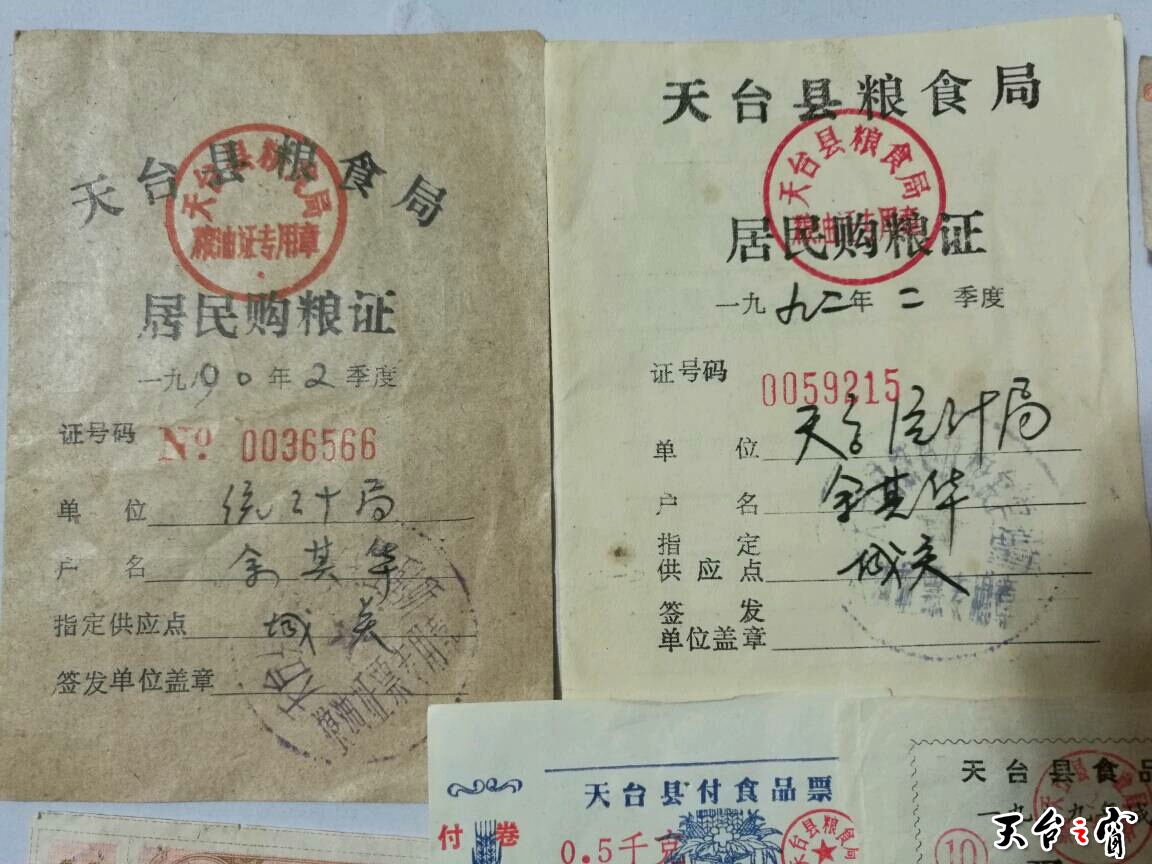 天台县粮食局
天台县粮食局
粮油证专用章
居民购粮证
一九90年2季度
证号码
No 0036566
单位 统计局
户名 余其华
指定供应点 城关
签发单位盖章
天台
粮油证票专用章
天台县粮食局
天台县粮食局
粮油证专用章
居民购粮证
一九九二年二季度
证号码
0059215
单位 天台统计局
户名 余其华
指定
供应点 城关
签发
单位盖章
天台县付食品票
付券
0.5千克
天台县粮食局
天台县食品
一九
九年
10
天台之窗